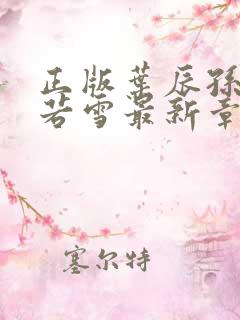 正版葉辰孫
若雪最新章
塞尔特